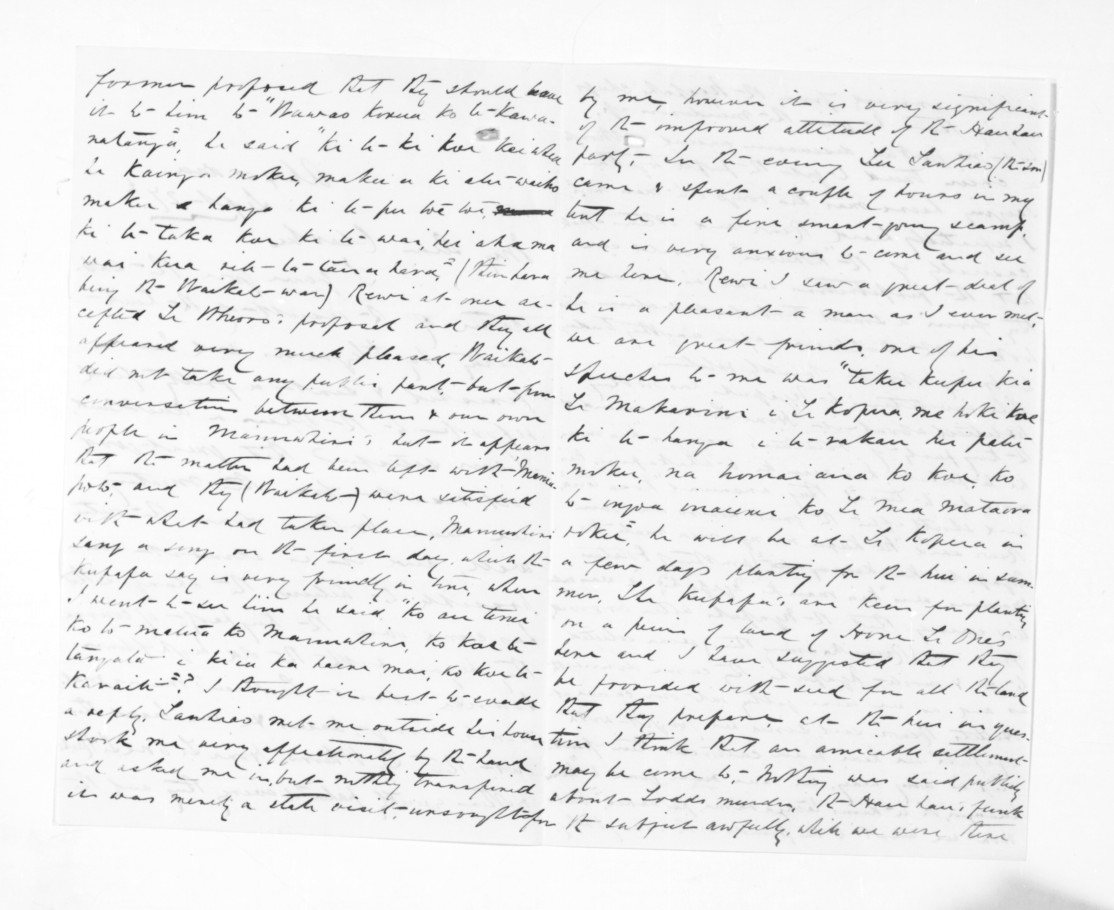 former proposed that they should leave
it to him to "Wawao korua ko te Kawa-
natanga", he said "ki te ki koe kei whea
te Kainga mokes, makee e ki atu waiho
makee e hanga ki te pu wē wē,
ki te taka koe ki te wai, hei aha ma
wai kua
being the Waikato war) Rewi at once ac-
cepted Te Wheoro's proposal and they all
appeared very much pleased, Waikato
did not take any public part but from
conversation between them & our own
people in Manuhiri's hut it appears
that the matter had been left with Mania-
poto, and they (Waikato) were satisfied
with what had taken place, Manuhiri
sang a song on the first day, which the
Kupapa say is very friendly in tone, when
I went to see him he said "Ko au tenei
ko to matua ko Manuhiri, ko koe te
tangata i kiia ka haere mai, ko koe te
Karaiti"? I thought it best to evade
a reply. Tawhiao met me outside his house
shook me very affectionately by the hand
and asked me in, but nothing transpired
it was merely a state visit, unsought for
by me, however it is very significant
of the improved attitude of the Hau Hau
party. In the evening Tu Tawhiao (the son)
came & spent a couple of hours in my
tent he is a fine smart young scamp,
and is very anxious to come and see
me here, Rewi I saw a great deal of
he is as pleasant a man as I ever met,
we are great friends, one of his
speeches to me was "taku kupu kia
Te Makarini i Te Kopua, me hoki koe
ki te hanga i te rakau hei patu
moku, na homai ana ko koe, ko
to ingoa inaianei ko Te Mea Mataora
rokee", he will be at Te Kopua in
a few days planting for the hui in sum-
mer, The Kupapa's are keen for planting
on a piece of land of Hone Te One's
here and I have suggested that they
be provided with seed for all the land
that they prepare, at the hui in ques-
tion I think that an amicable settlement
may be come to, Nothing was said publicly
about Todds murder, the Hau Hau's funk
the subject awfully, while we were there